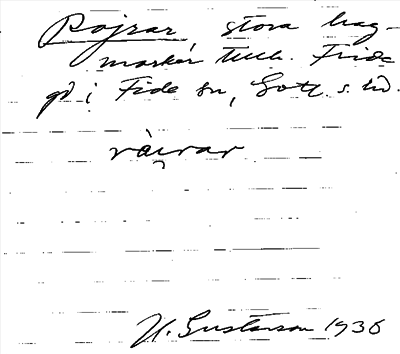 Rojrar, stora hag-
marker tillh. Fride
gd i Fide sn, Gotl. s. hd.
ràirar
H. Gustavson 1936